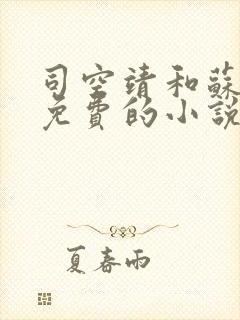 司空靖和蘇
免費的小說
夏春雨